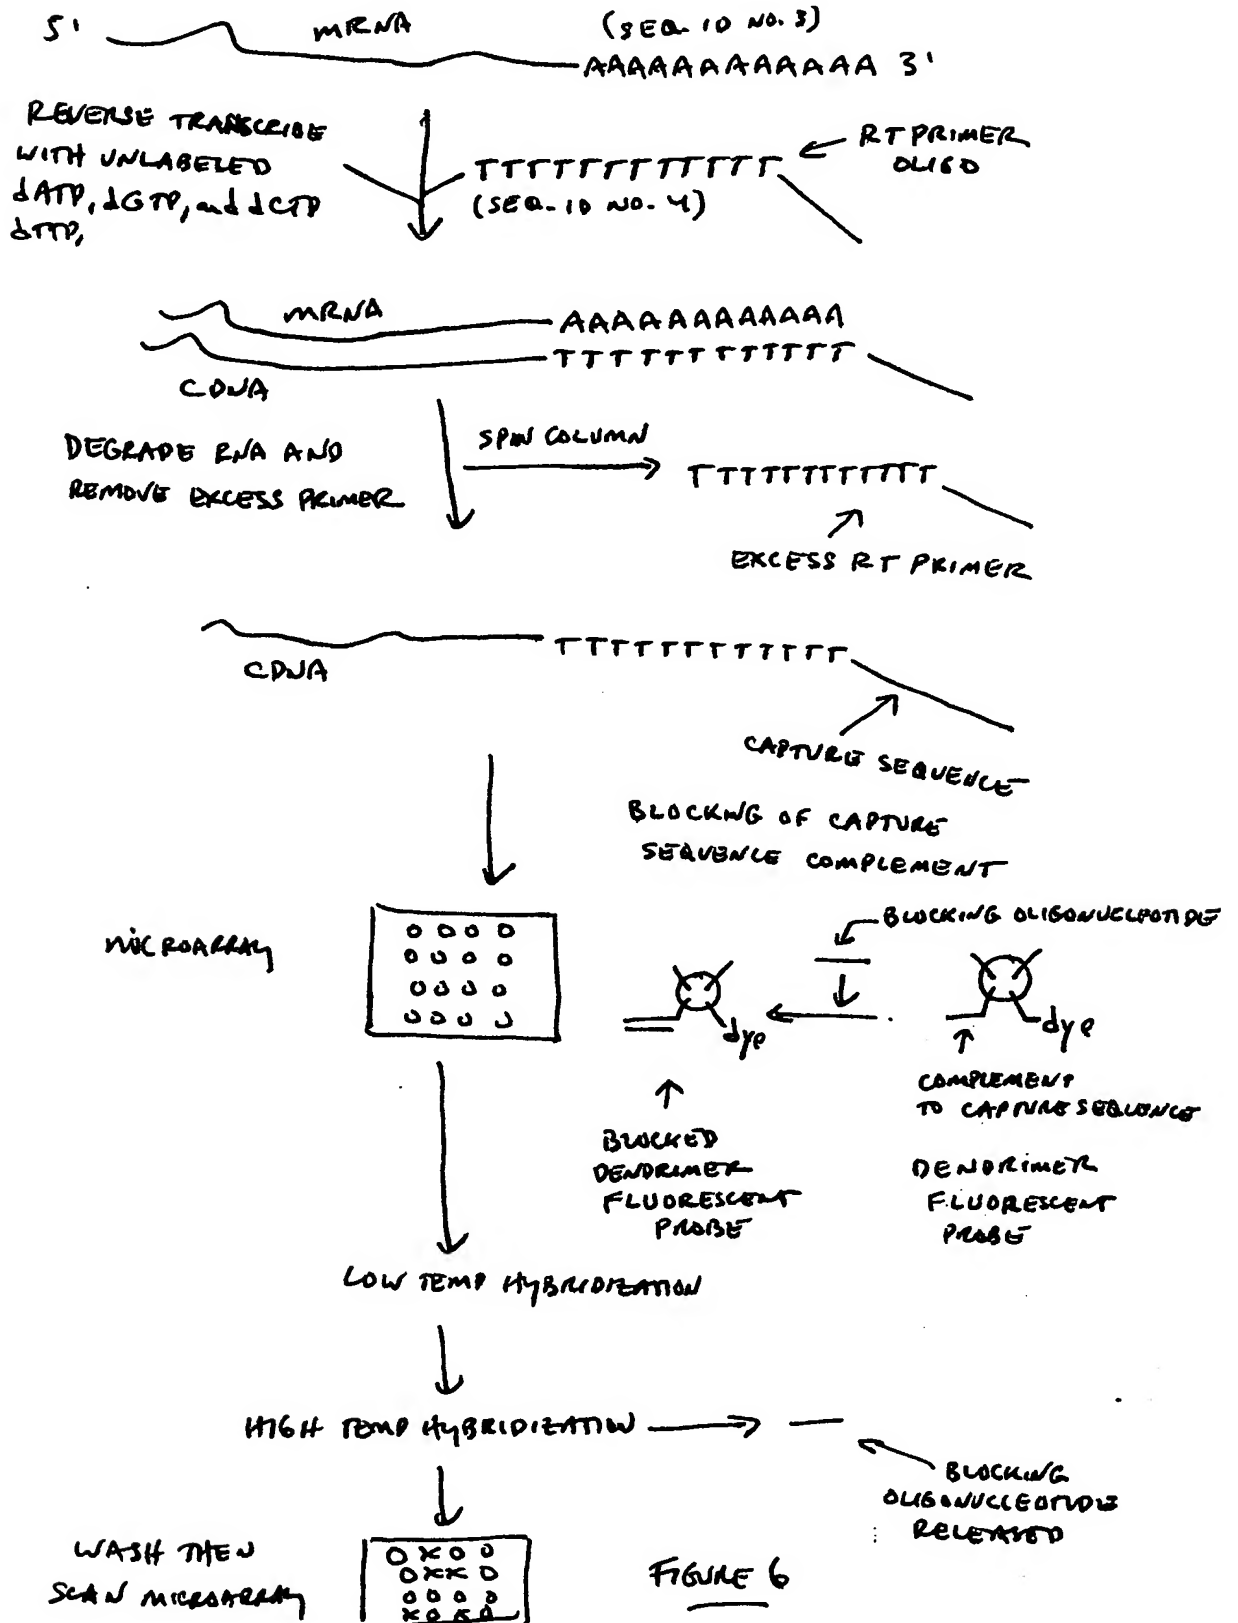 5' mRNA (SEQ. ID NO. 3)
AAAAAAAAAAAAA 3'
REVERSE TRANSCRIBE
WITH UNLABELED
dATP, dGTP, and dCTP
dTTP,
TTTTTTTTTTTTT
(SEQ. ID NO. 4)
RT PRIMER
OLIGO
mRNA AAAAAAAAAAAA
TTTTTTTTTTTT
CDNA
DEGRADE RNA AND
REMOVE EXCESS PRIMER
SPIN COLUMN
TTTTTTTTTTTT
EXCESS RT PRIMER
TTTTTTTTTTTT
CDNA
CAPTURE SEQUENCE
BLOCKING OF CAPTURE
SEQUENCE COMPLEMENT
MICROARRAY
BLOCKING OLIGONUCLEOTIDE
dye
dye
COMPLEMENT
TO CAPTURE SEQUENCE
BLOCKED
DENDRIMER
FLUORESCENT
PROBE
DENDRIMER
FLUORESCENT
PROBE
LOW TEMP HYBRIDIZATION
HIGH TEMP HYBRIDIZATION
BLOCKING
OLIGONUCLEOTIDE
RELEASED
WASH THEN
SCAN MICROARRAY
O X O O
O X X O
O O O O
X O X O
FIGURE 6